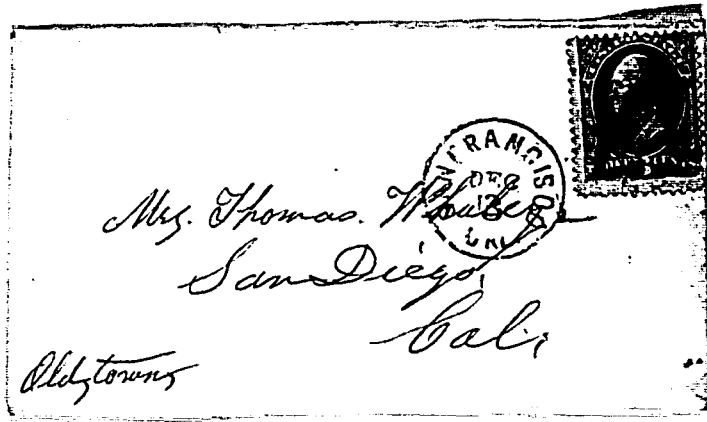 SAN FRANCISCO
DEC
13
CAL.
Mrs. Thomas. Whaley
San Diego,
Cal,
Old town,